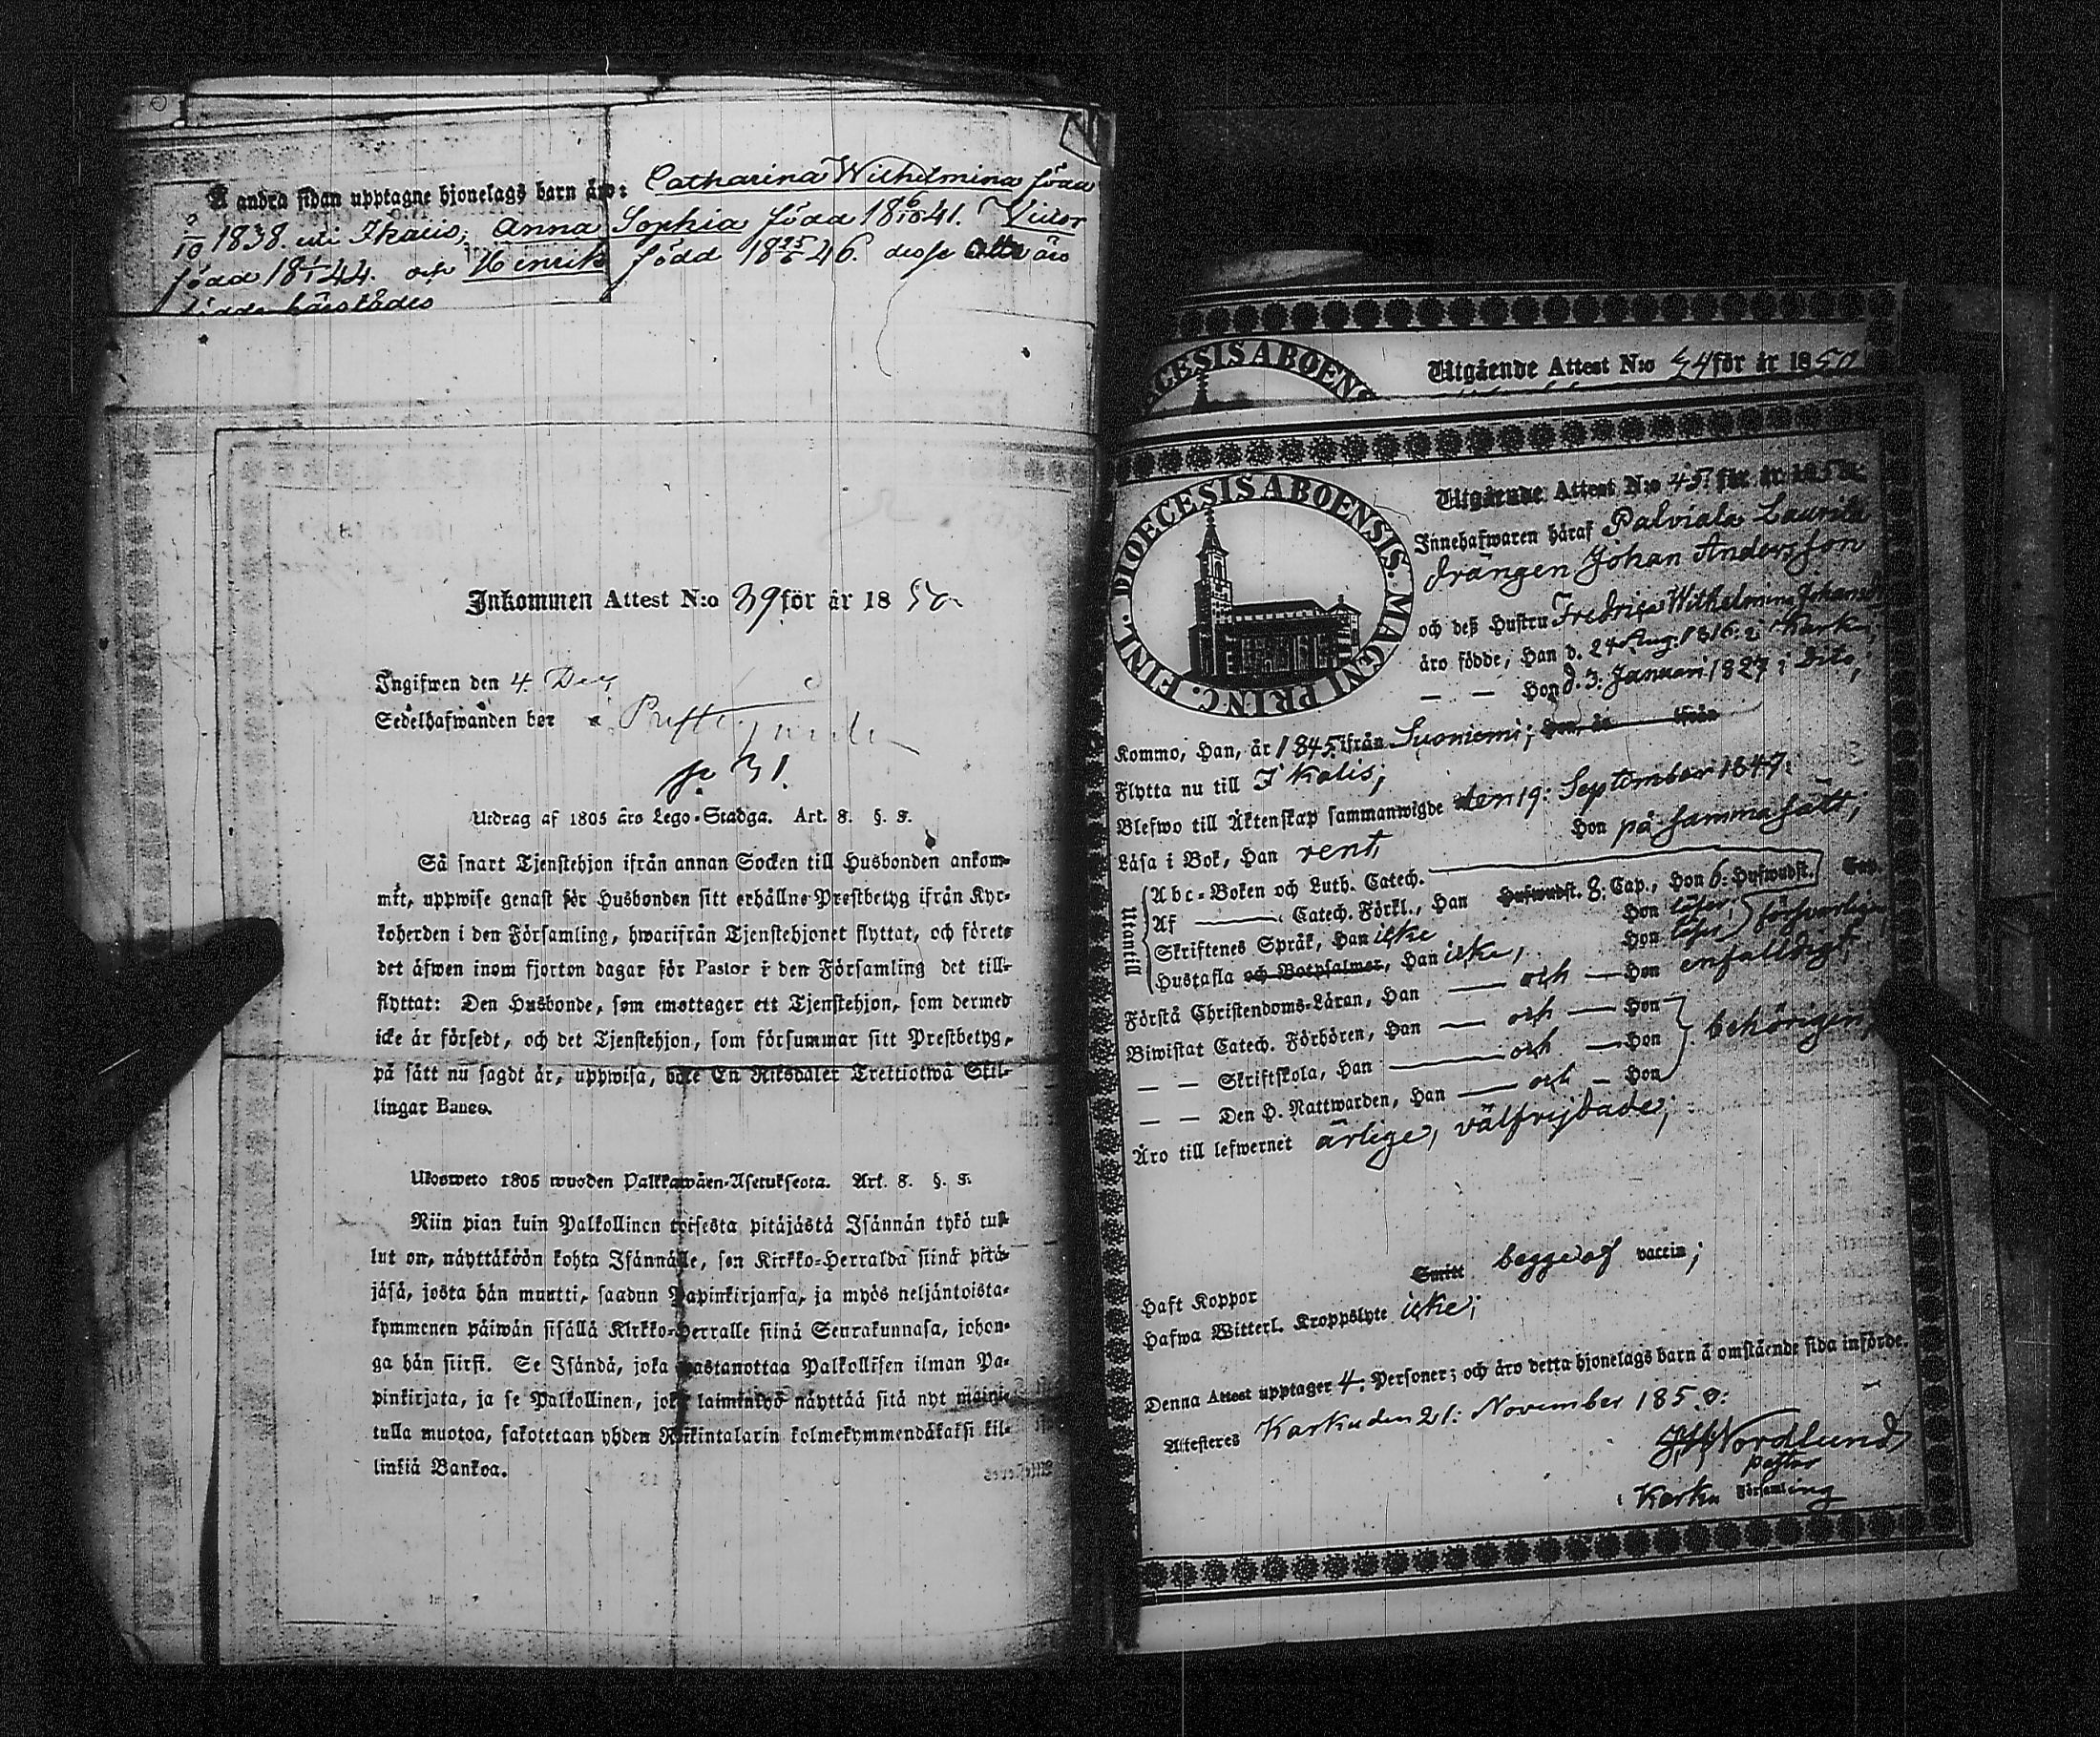 Å andra sidan upptagne hjonelags barn äro: Catharina Wilhelmina född
1838. uti Ikalis; Anna Sophia född 18 6/10 41. Victor
född 18 1/1 44. och Henrik född 18 25/6 46. desse alla äro
födde härstädes
Inkommen Attest N:o 39 för år 1850
Ingifwen den 4. Dec
Sedelhafwanden bor å
p. 31.
Utdrag af 1805 års Lego-Stadga. Art. 8. §. 8.
Så snart Tjenstehjon ifrån annan Socken till Husbonden ankom-
mit, uppwise genast för Husbonden sitt erhållne Prestbetyg ifrån Kyr-
koherden i den Församling, hwarifrån Tjenstehjonet flyttat, och förete
det äfwen inom fjorton dagar för Pastor i den Församling det till-
flyttat: Den Husbonde, som emottager ett Tjenstehjon, som dermed
icke är försedt, och det Tjenstehjon, som försummar sitt Prestbetyg,
på sätt nu sagdt är, uppwisa, böte En Riksdaler Trettiotwå Skil-
lingar Banco.
Ulosweto 1805 wuoden Palkkawäen-Asetuksesta. Art. 8. §. 8.
Niin pian kuin Palkollinen toisesta pitäjästä Isännän tykö tul-
lut on, näyttäköön kohta Isännälle, sen Kirkko-Herralda siinä pitä-
jäsä, josta hän muutti, saadun Papinkirjansa, ja myös neljäntoista-
kymmenen päiwän sisällä Kirkko-Herralle siinä Seurakunnasa, johon-
ga hän siirsi. Se Isändä, joka wastanottaa Palkollisen ilman Pa-
pinkirjata, ja se Palkollinen, joka laiminlyö näyttää sitä nyt maini-
tulla muotoa, sakotetaan yhden Riikintalarin kolmekymmendäkaksi kil-
linkiä Bankoa.
Utgående Attest N:o 44 för år 1850
DIOECESIS ABOENSIS. MAGNI PRINC. FINL.
Utgående Attest N:o 45. för år 1850.
Innehafwaren häraf Palviala Laurila
drängen Johan Andersson
och dess Hustru Fredrica Wilhelmina Johansdr
äro födde, Han d. 24 Aug. 1816. i Karku;
— — Hon d. 3. Januari 1827 i dito;
Kommo, Han, år 1845. ifrån Suoniemi; Hon, år ifrån
Flytta nu till Ikalis;
Blefwo till Äktenskap sammanwigde den 19: September 1847.
Läsa i Bok, Han rent, Hon på samma sätt;
Utantill
Abc-Boken och Luth. Catech.
Af — Catech. Förkl., Han Hufwudst. 8: Cap., Hon 6: Hufwudst. Cap.
Skriftenes Språk, Han icke Hon läser, försvarligen
Hustafla och Botpsalmer, Han icke, Hon läser
Förstå Christendoms-Läran, Han — och — Hon enfalldigt,
Biwistat Catech. Förhören, Han — och — Hon
— — Skriftskola, Han — och — Hon behörigen,
— — Den H. Nattwarden, Han — och — Hon
Äro till lefwernet ärlige, välfrejdade;
Haft Koppor Smitt begge af vaccin;
Hafwa Witterl. Kroppslyte icke;
Denna Attest upptager 4. Personer; och äro detta hjonelags barn å omstående sida införde.
Attesteres Karku den 21: November 1850:
Nordlund
Pastor
i Karku Församling